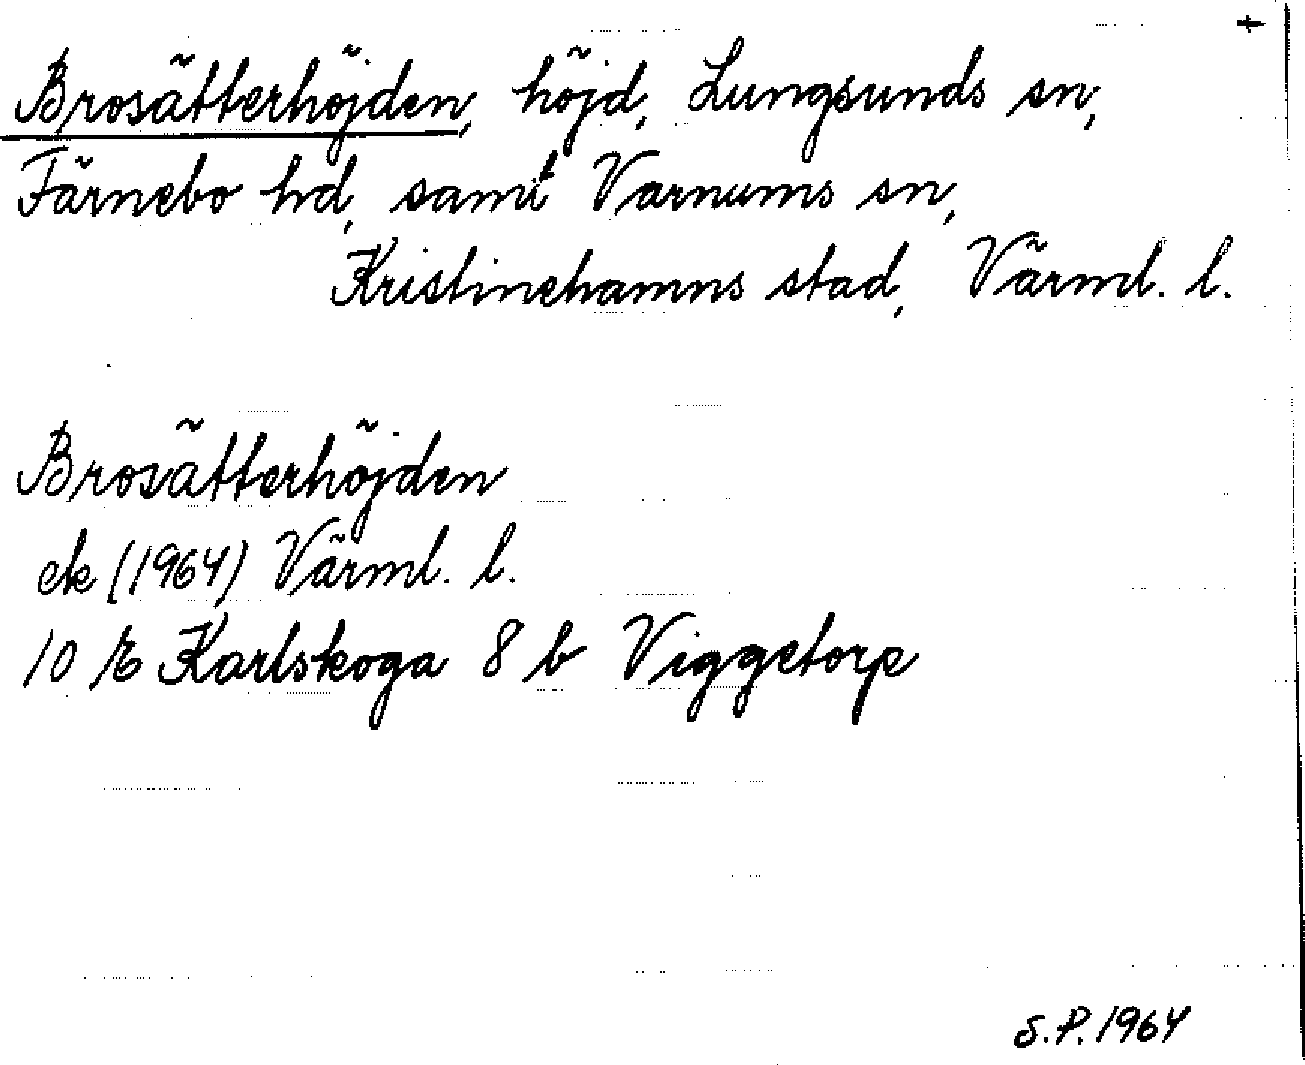 +
Brosätterhöjden, höjd, Lungsunds sn,
Färnebo hd, samt Varnums sn,
Kristinehamns stad, Värml. l.
Brosätterhöjden
ek (1964) Värml. l.
10 E Karlskoga 8 b Viggetorp
S.P. 1964